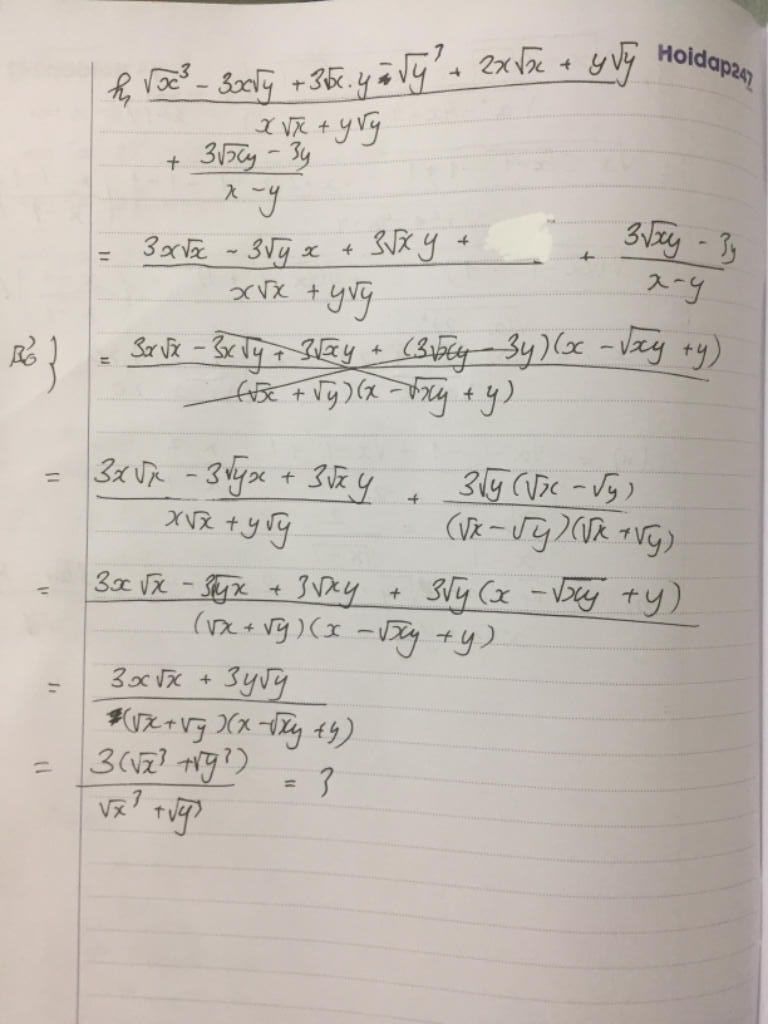 h, √x³ - 3x√y + 3√x.y - √y³ + 2x√x + y√y Hoidap247
x√x + y√y
+ 3√xy - 3y
x - y
= 3x√x - 3√y x + 3√x y + + 3√xy - 3y
x√x + y√y x - y
Bỏ } = 3x√x - 3x√y + 3√x y + (3√xy - 3y)(x - √xy + y)
(√x + √y)(x - √xy + y)
= 3x√x - 3√y x + 3√x y + 3√y (√x - √y)
x√x + y√y (√x - √y)(√x + √y)
= 3x√x - 3√y x + 3√x y + 3√y (x - √xy + y)
(√x + √y)(x - √xy + y)
= 3x√x + 3y√y
(√x + √y)(x - √xy + y)
= 3(√x³ + √y³) = 3
√x³ + √y³